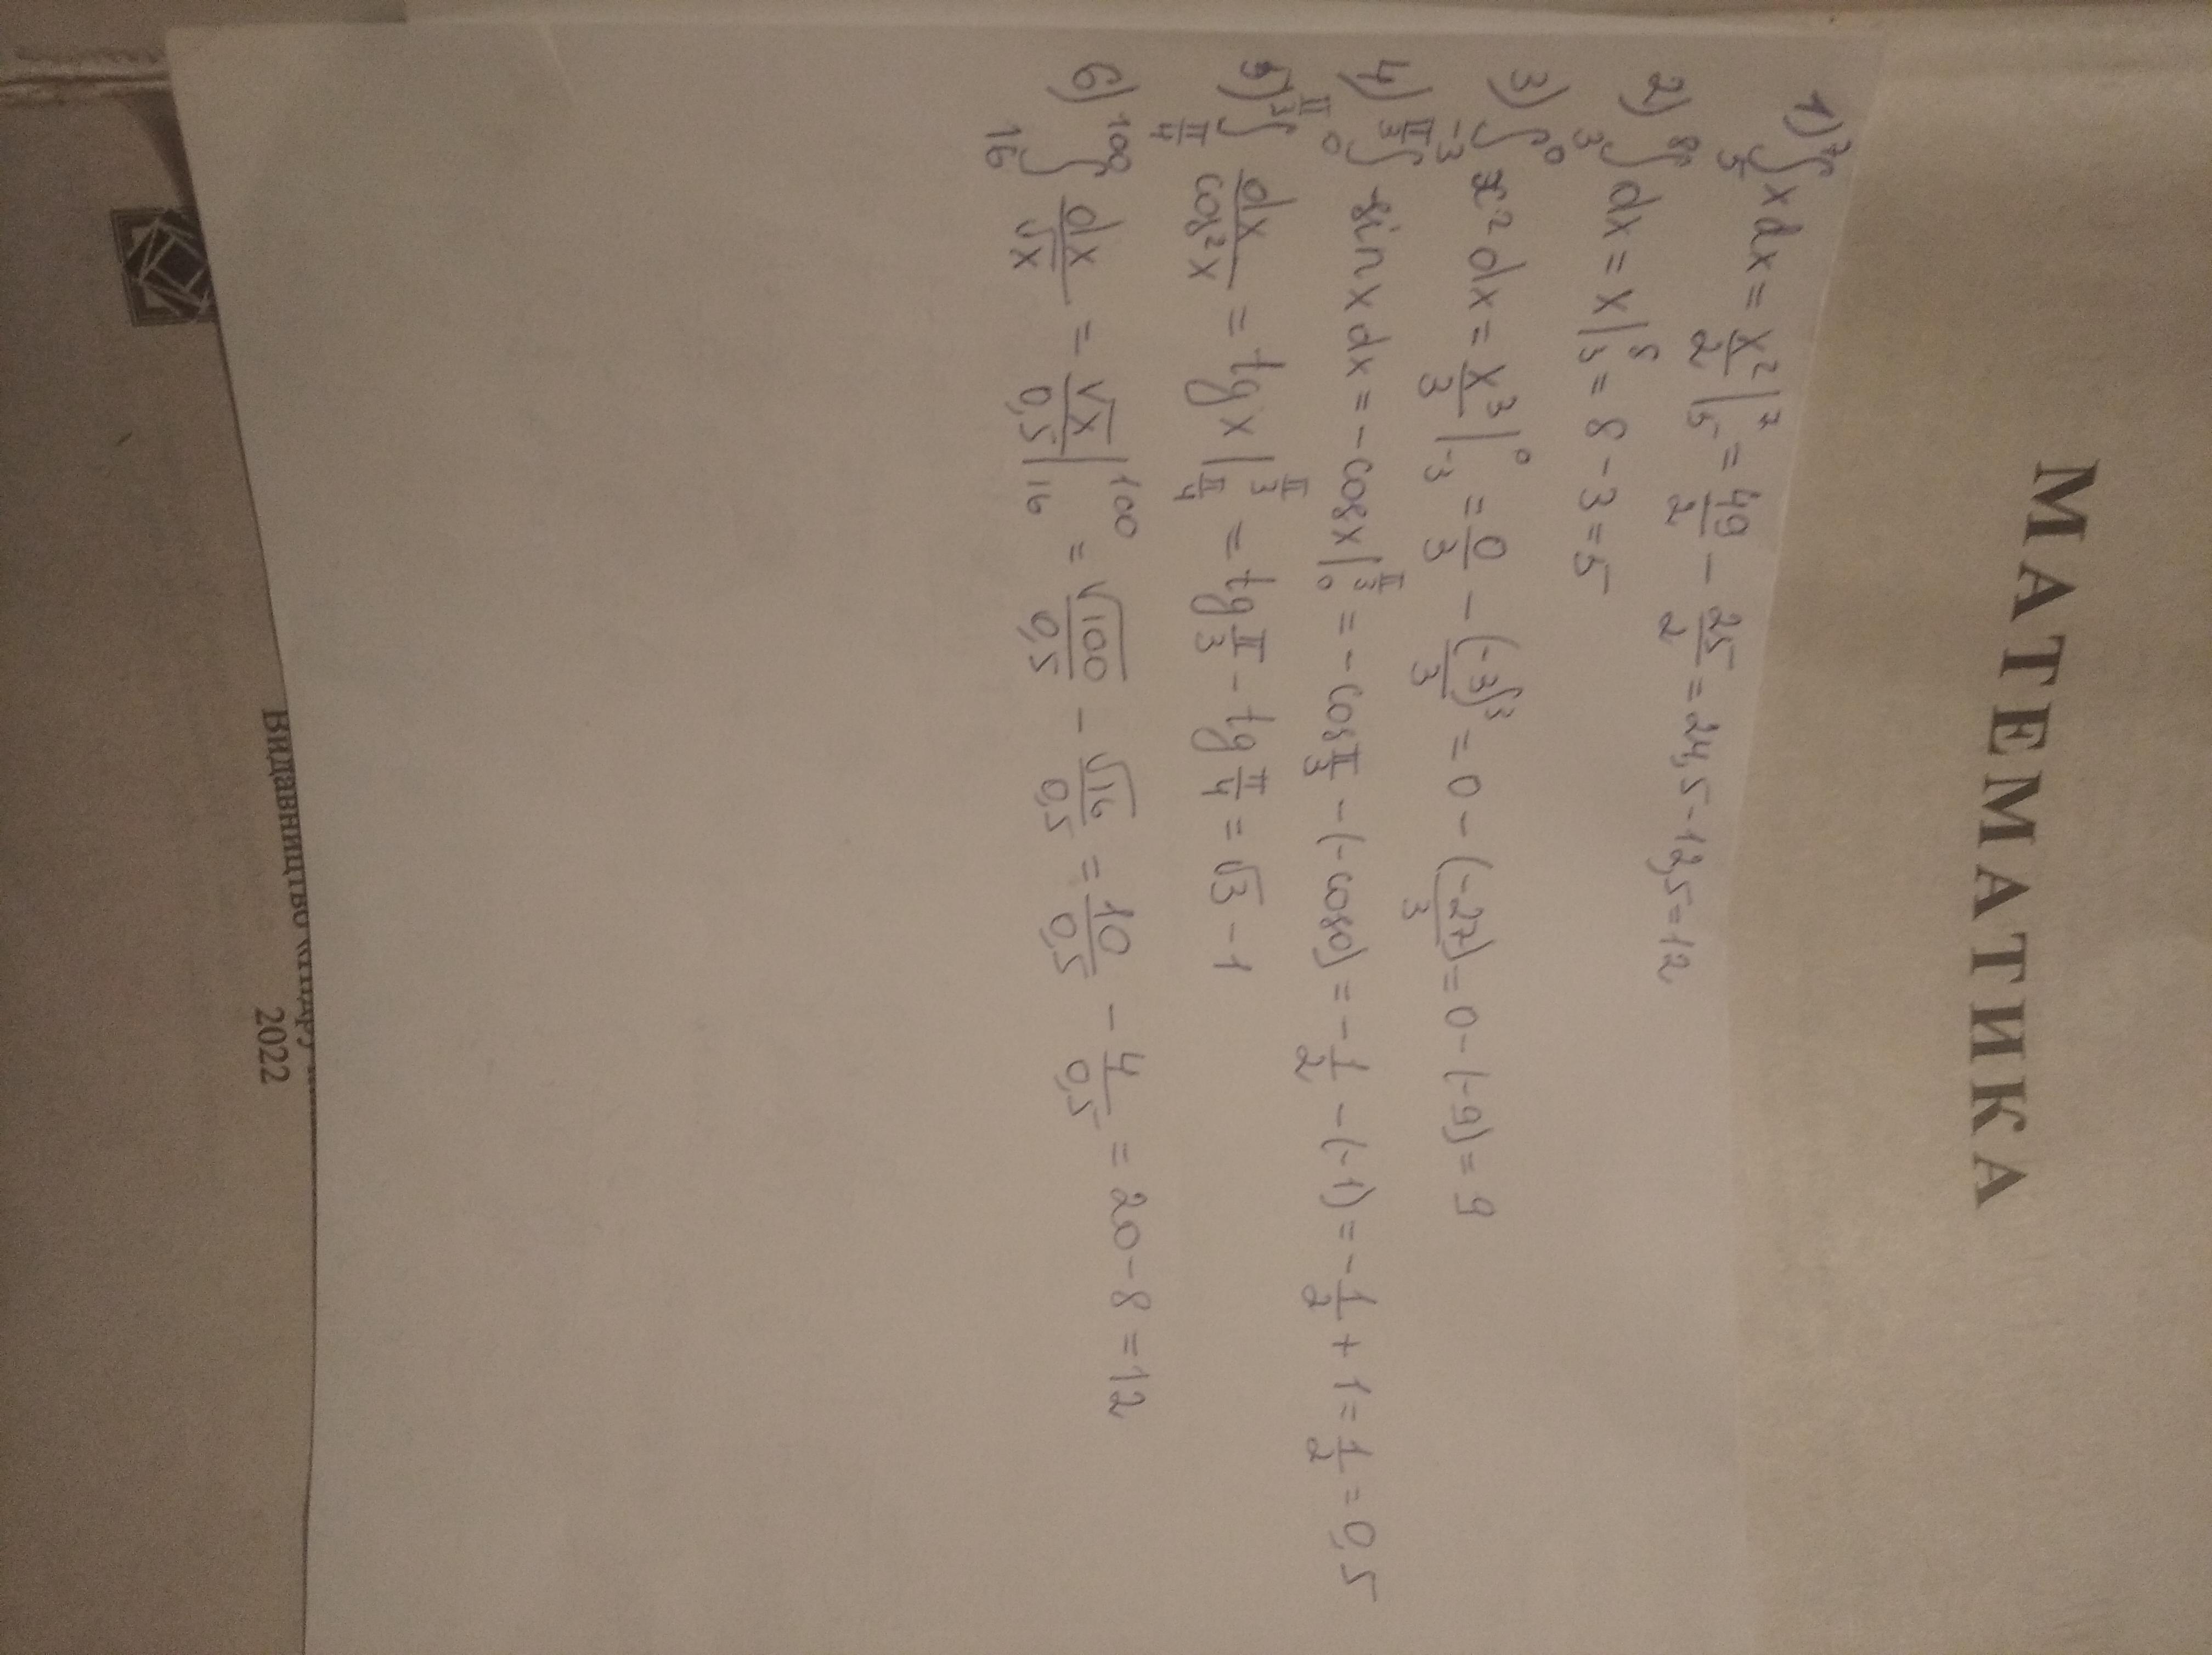 МАТЕМАТИКА
1) ∫₅⁷ x dx = x²/2 |₅⁷ = 49/2 - 25/2 = 24,5 - 12,5 = 12
2) ∫₃⁸ dx = x |₃⁸ = 8 - 3 = 5
3) ∫₋₃⁰ x² dx = x³/3 |₋₃⁰ = 0/3 - (-3)³/3 = 0 - (-27)/3 = 0 - (-9) = 9
4) ∫₀^(π/3) sin x dx = - cos x |₀^(π/3) = - cos π/3 - (- cos 0) = - 1/2 - (-1) = - 1/2 + 1 = 1/2 = 0,5
5) ∫_(π/4)^(π/3) dx/cos² x = tg x |_(π/4)^(π/3) = tg π/3 - tg π/4 = √3 - 1
6) ∫₁₆¹⁰⁰ dx/√x = √x/0,5 |₁₆¹⁰⁰ = √100/0,5 - √16/0,5 = 10/0,5 - 4/0,5 = 20 - 8 = 12
Видавництво
2022